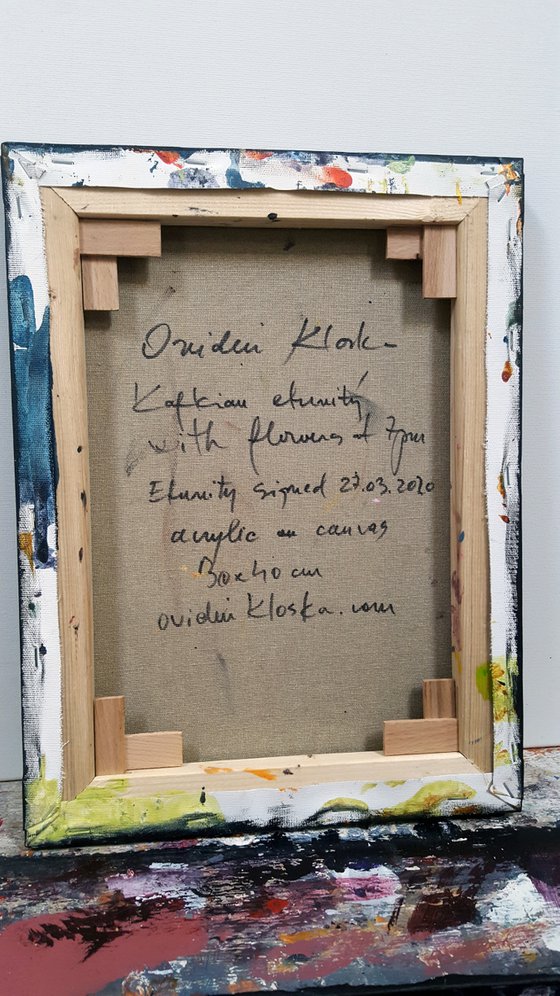 Ovidiu Kloska
Kafkian eternity
with flowers at 7pm
Eternity signed 27.03.2020
acrylic on canvas
30x40 cm
ovidiu Kloska.com